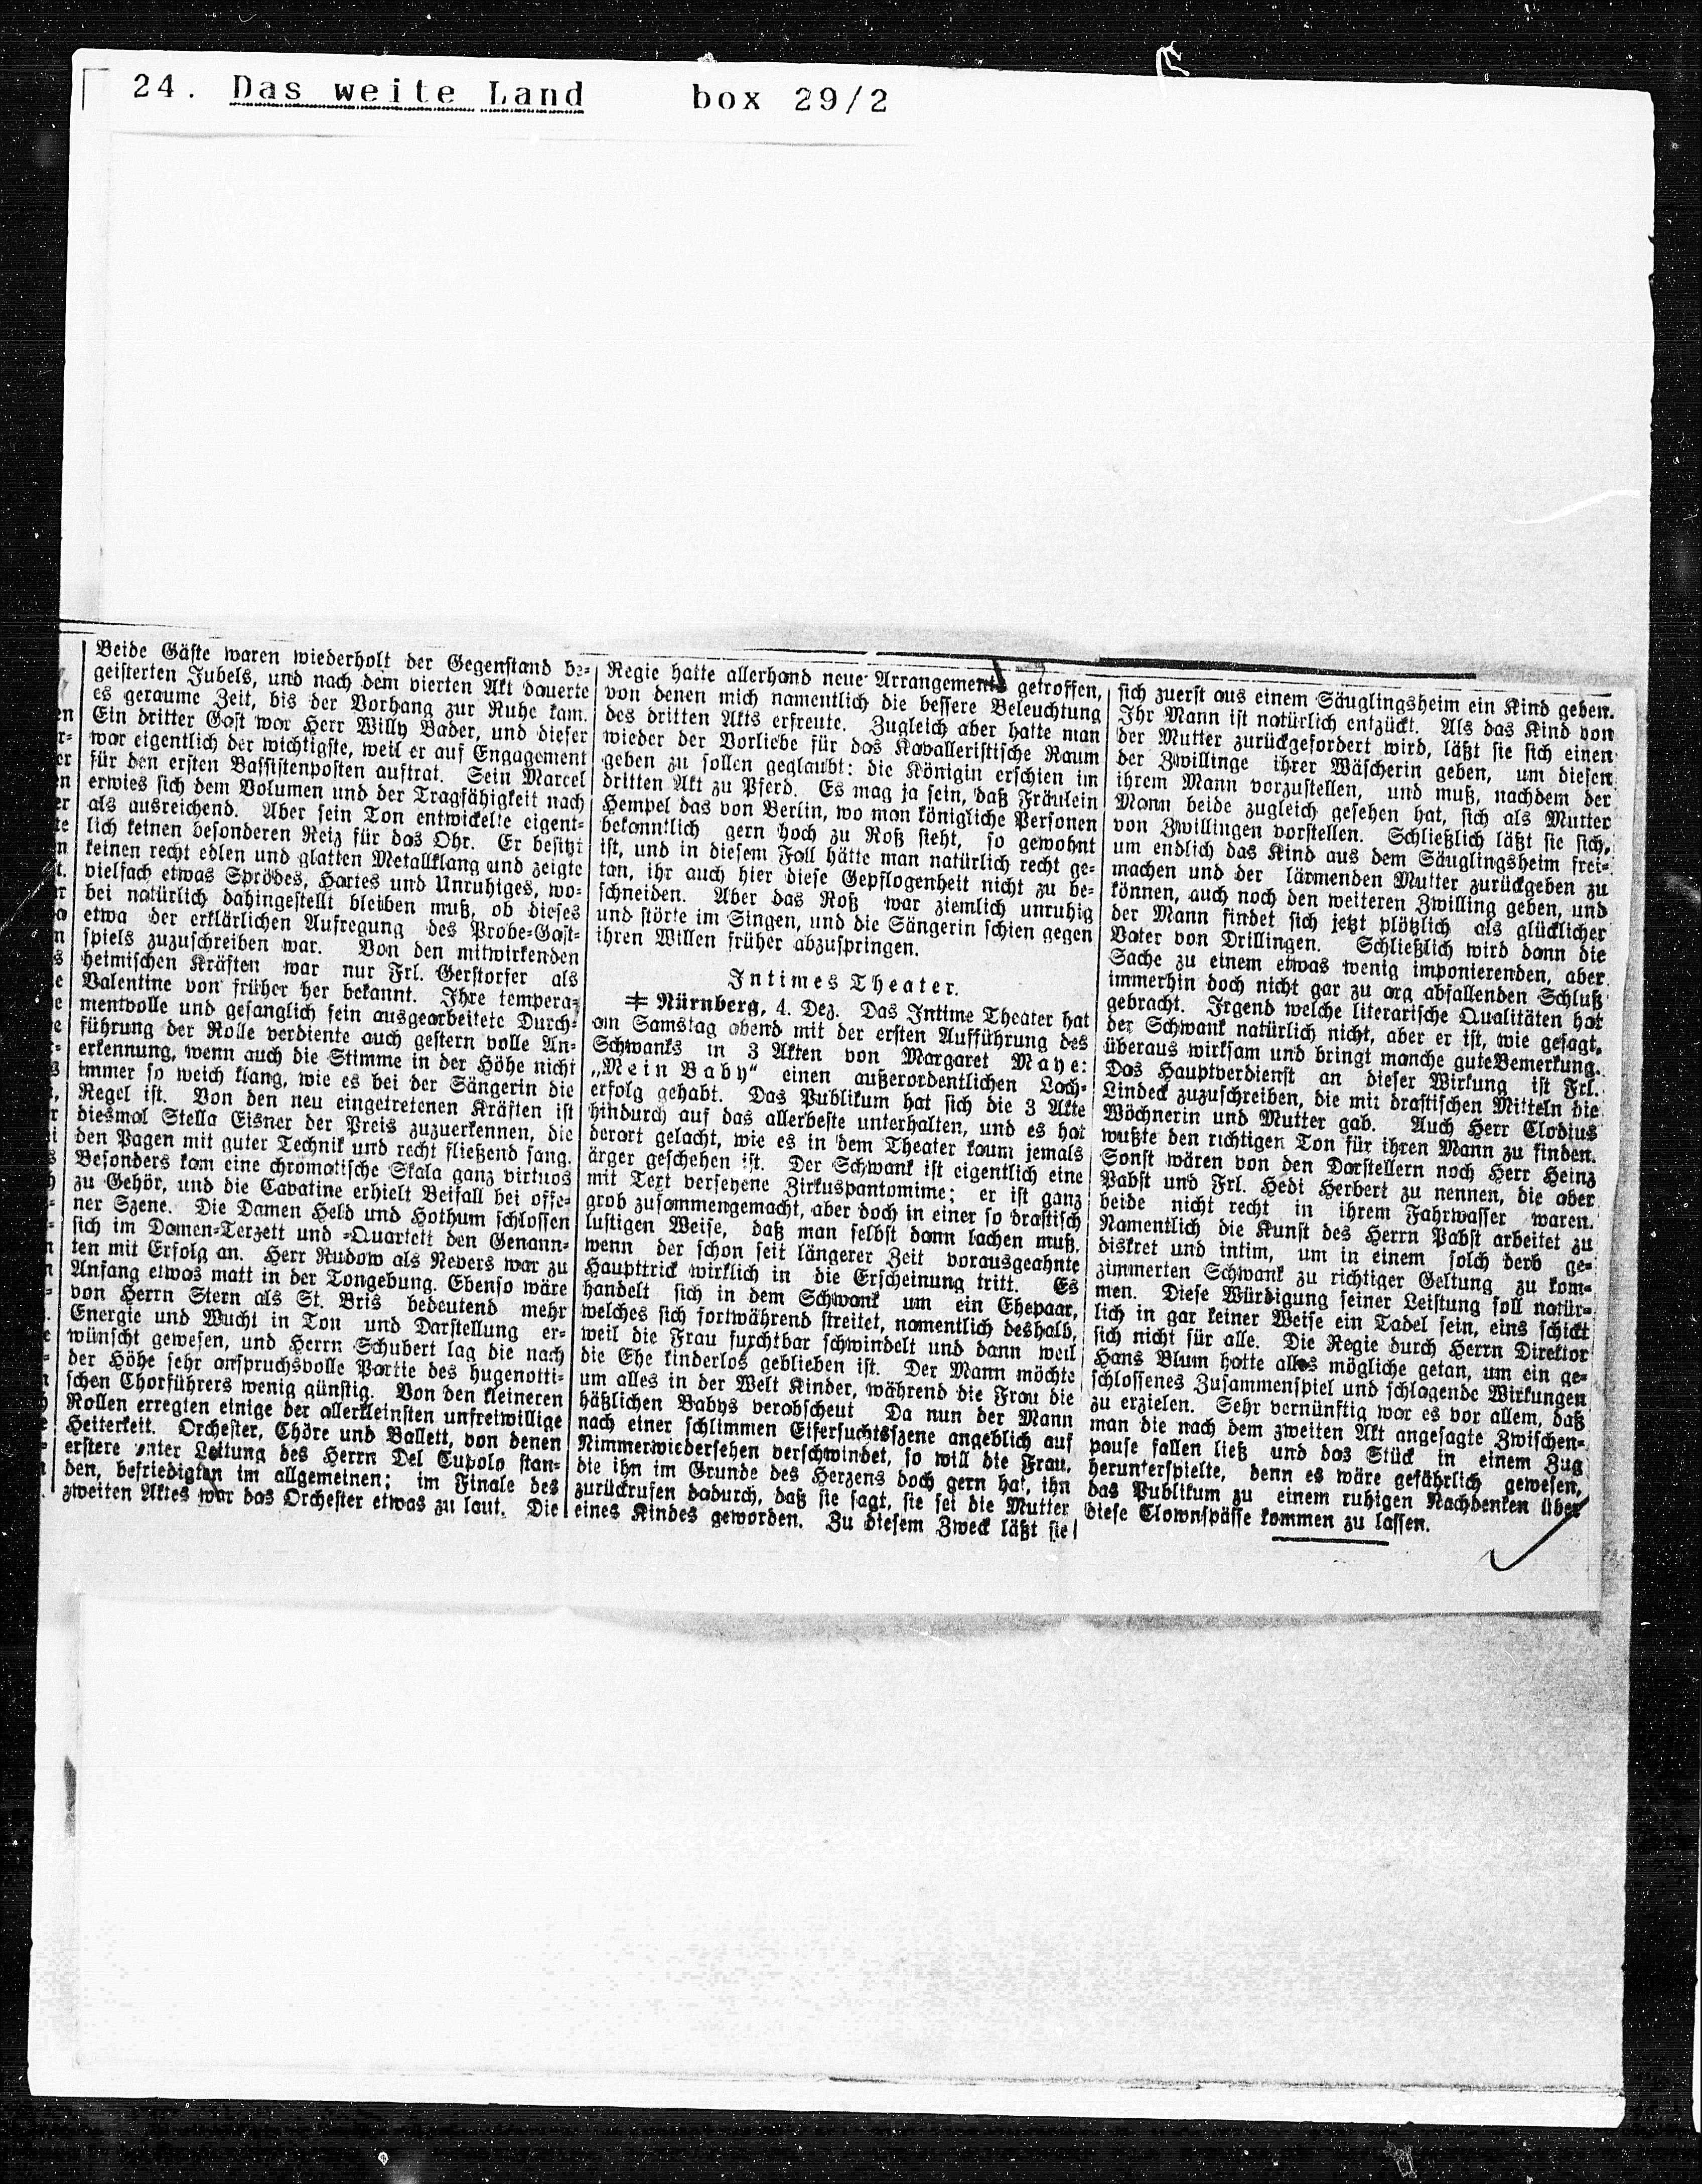 24. Das weite Land box 29/2
Beide Gäste waren wiederholt der Gegenstand be-
geisterten Jubels, und nach dem vierten Akt dauerte
es geraume Zeit, bis der Vorhang zur Ruhe kam.
Ein dritter Gast war Herr Willy Bader, und dieser
war eigentlich der wichtigste, weil er auf Engagement
für den ersten Bassistenposten auftrat. Sein Marcel
erwies sich dem Volumen und der Tragfähigkeit nach
als ausreichend. Aber sein Ton entwickelte eigent-
lich keinen besonderen Reiz für das Ohr. Er besitzt
keinen recht edlen und glatten Metallklang und zeigte
vielfach etwas Sprödes, Hartes und Unruhiges, wo-
bei natürlich dahingestellt bleiben muß, ob dieses
etwa der erklärlichen Aufregung des Probe-Gast-
spiels zuzuschreiben war. Von den mitwirkenden
heimischen Kräften war nur Frl. Gerstorfer als
Valentine von früher her bekannt. Ihre tempera-
mentvolle und gesanglich fein ausgearbeitete Durch-
führung der Rolle verdiente auch gestern volle An-
erkennung, wenn auch die Stimme in der Höhe nicht
immer so weich klang, wie es bei der Sängerin die
Regel ist. Von den neu eingetretenen Kräften ist
diesmal Stella Eisner der Preis zuzuerkennen, die
den Pagen mit guter Technik und recht fließend sang.
Besonders kam eine chromatische Skala ganz virtuos
zu Gehör, und die Cavatine erhielt Beifall bei offe-
ner Szene. Die Damen Held und Hothum schlossen
sich im Damen-Terzett und -Quartett den Genann-
ten mit Erfolg an. Herr Rudow als Nevers war zu
Anfang etwas matt in der Tongebung. Ebenso wäre
von Herrn Stern als St. Bris bedeutend mehr
Energie und Wucht in Ton und Darstellung er-
wünscht gewesen, und Herrn Schubert lag die nach
der Höhe sehr anspruchsvolle Partie des hugenotti-
schen Chorführers wenig günstig. Von den kleineren
Rollen erregten einige der allerkleinsten unfreiwillige
Heiterkeit. Orchester, Chöre und Ballett, von denen
erstere unter Leitung des Herrn Del Cupolo stan-
den, befriedigten im allgemeinen; im Finale des
zweiten Aktes war das Orchester etwas zu laut. Die
Regie hatte allerhand neue Arrangements getroffen,
von denen mich namentlich die bessere Beleuchtung
des dritten Akts erfreute. Zugleich aber hatte man
wieder der Vorliebe für das Kavalleristische Raum
geben zu sollen geglaubt: die Königin erschien im
dritten Akt zu Pferd. Es mag ja sein, daß Fräulein
Hempel das von Berlin, wo man königliche Personen
bekanntlich gern hoch zu Roß sieht, so gewohnt
ist, und in diesem Fall hätte man natürlich recht ge-
tan, ihr auch hier diese Gepflogenheit nicht zu be-
schneiden. Aber das Roß war ziemlich unruhig
und störte im Singen, und die Sängerin schien gegen
ihren Willen früher abzuspringen.
Intimes Theater.
≠ Nürnberg, 4. Dez. Das Intime Theater hat
am Samstag abend mit der ersten Aufführung des
Schwanks in 3 Akten von Margaret Maye:
„Mein Baby“ einen außerordentlichen Lach-
erfolg gehabt. Das Publikum hat sich die 3 Akte
hindurch auf das allerbeste unterhalten, und es hat
derart gelacht, wie es in dem Theater kaum jemals
ärger geschehen ist. Der Schwank ist eigentlich eine
mit Text versehene Zirkuspantomime; er ist ganz
grob zusammengemacht, aber doch in einer so drastisch
lustigen Weise, daß man selbst dann lachen muß,
wenn der schon seit längerer Zeit vorausgeahnte
Haupttrick wirklich in die Erscheinung tritt. Es
handelt sich in dem Schwank um ein Ehepaar,
welches sich fortwährend streitet, namentlich deshalb,
weil die Frau furchtbar schwindelt und dann weil
die Ehe kinderlos geblieben ist. Der Mann möchte
um alles in der Welt Kinder, während die Frau die
häßlichen Babys verabscheut Da nun der Mann
nach einer schlimmen Eifersuchtsszene angeblich auf
Nimmerwiedersehen verschwindet, so will die Frau,
die ihn im Grunde des Herzens doch gern hat, ihn
zurückrufen dadurch, daß sie sagt, sie sei die Mutter
eines Kindes geworden. Zu diesem Zweck läßt sie
sich zuerst aus einem Säuglingsheim ein Kind geben.
Ihr Mann ist natürlich entzückt. Als das Kind von
der Mutter zurückgefordert wird, läßt sie sich einen
der Zwillinge ihrer Wäscherin geben, um diesen
ihrem Mann vorzustellen, und muß, nachdem der
Mann beide zugleich gesehen hat, sich als Mutter
von Zwillingen vorstellen. Schließlich läßt sie sich,
um endlich das Kind aus dem Säuglingsheim frei-
machen und der lärmenden Mutter zurückgeben zu
können, auch noch den weiteren Zwilling geben, und
der Mann findet sich jetzt plötzlich als glücklicher
Vater von Drillingen. Schließlich wird dann die
Sache zu einem etwas wenig imponierenden, aber
immerhin doch nicht gar zu arg abfallenden Schluß
gebracht. Irgend welche literarische Qualitäten hat
der Schwank natürlich nicht, aber er ist, wie gesagt,
überaus wirksam und bringt manche gute Bemerkung.
Das Hauptverdienst an dieser Wirkung ist Frl.
Lindeck zuzuschreiben, die mit drastischen Mitteln die
Wöchnerin und Mutter gab. Auch Herr Clodius
wußte den richtigen Ton für ihren Mann zu finden.
Sonst wären von den Darstellern noch Herr Heinz
Pabst und Frl. Hedi Herbert zu nennen, die aber
beide nicht recht in ihrem Fahrwasser waren.
Namentlich die Kunst des Herrn Pabst arbeitet zu
diskret und intim, um in einem solch derb ge-
zimmerten Schwank zu richtiger Geltung zu kom-
men. Diese Würdigung seiner Leistung soll natür-
lich in gar keiner Weise ein Tadel sein, eins schickt
sich nicht für alle. Die Regie durch Herrn Direktor
Hans Blum hatte alles mögliche getan, um ein ge-
schlossenes Zusammenspiel und schlagende Wirkungen
zu erzielen. Sehr vernünftig war es vor allem, daß
man die nach dem zweiten Akt angesagte Zwischen-
pause fallen ließ und das Stück in einem Zug
herunterspielte, denn es wäre gefährlich gewesen,
das Publikum zu einem ruhigen Nachdenken über
diese Clownspässe kommen zu lassen.